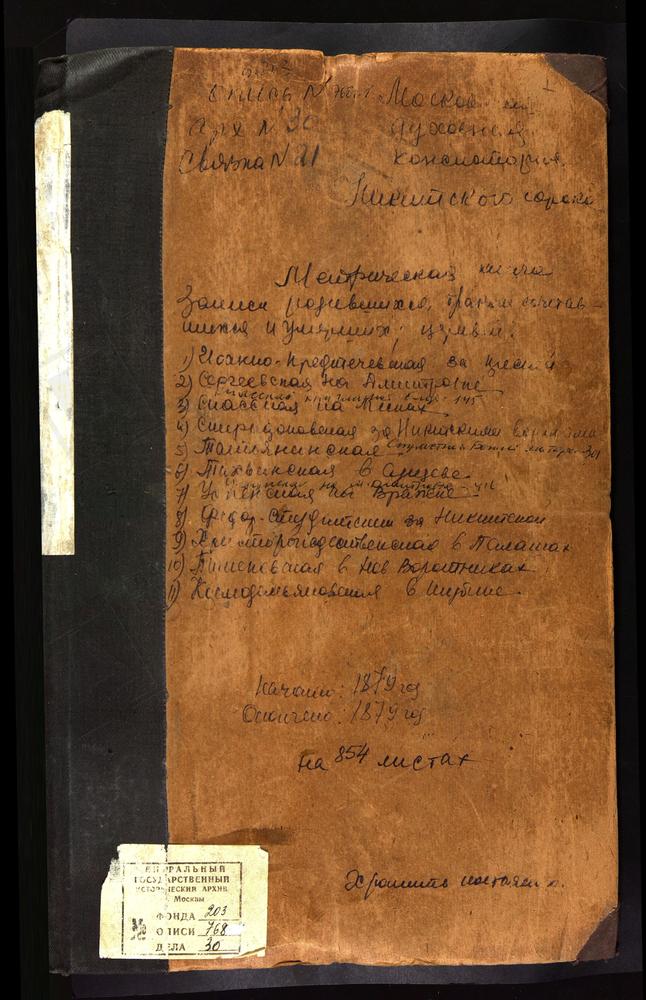 Опись № Московская
Арх № 30 духовная
Связка № 21 консистория
Никитского сорока
Метрическая книга
Записи родившихся, браком сочетав-
шихся и умерших; церкви:
1) Иоанно-Предтечевская за Пресней
2) Сергеевская на Дмитровке
3) Спасская на Песках
4) Спиридоновская за Никитскими воротами
5) Татьянинская
6) Тихвинская в Сущеве
7) Успенская на Вражке
8) Федор-Студитская за Никитской
9) Христорождественская в Палашах
10) Пименовская в Нов Воротниках
11) Космодемьяновская в Шубине
Начато: 1879 год
Окончено: 1879 год
на 854 листах
Хранить постоянно.
ЦЕНТРАЛЬНЫЙ
ГОСУДАРСТВЕННЫЙ
ИСТОРИЧЕСКИЙ АРХИВ
г. Москвы
№ ФОНДА 203
ОПИСИ 768
ДЕЛА 30